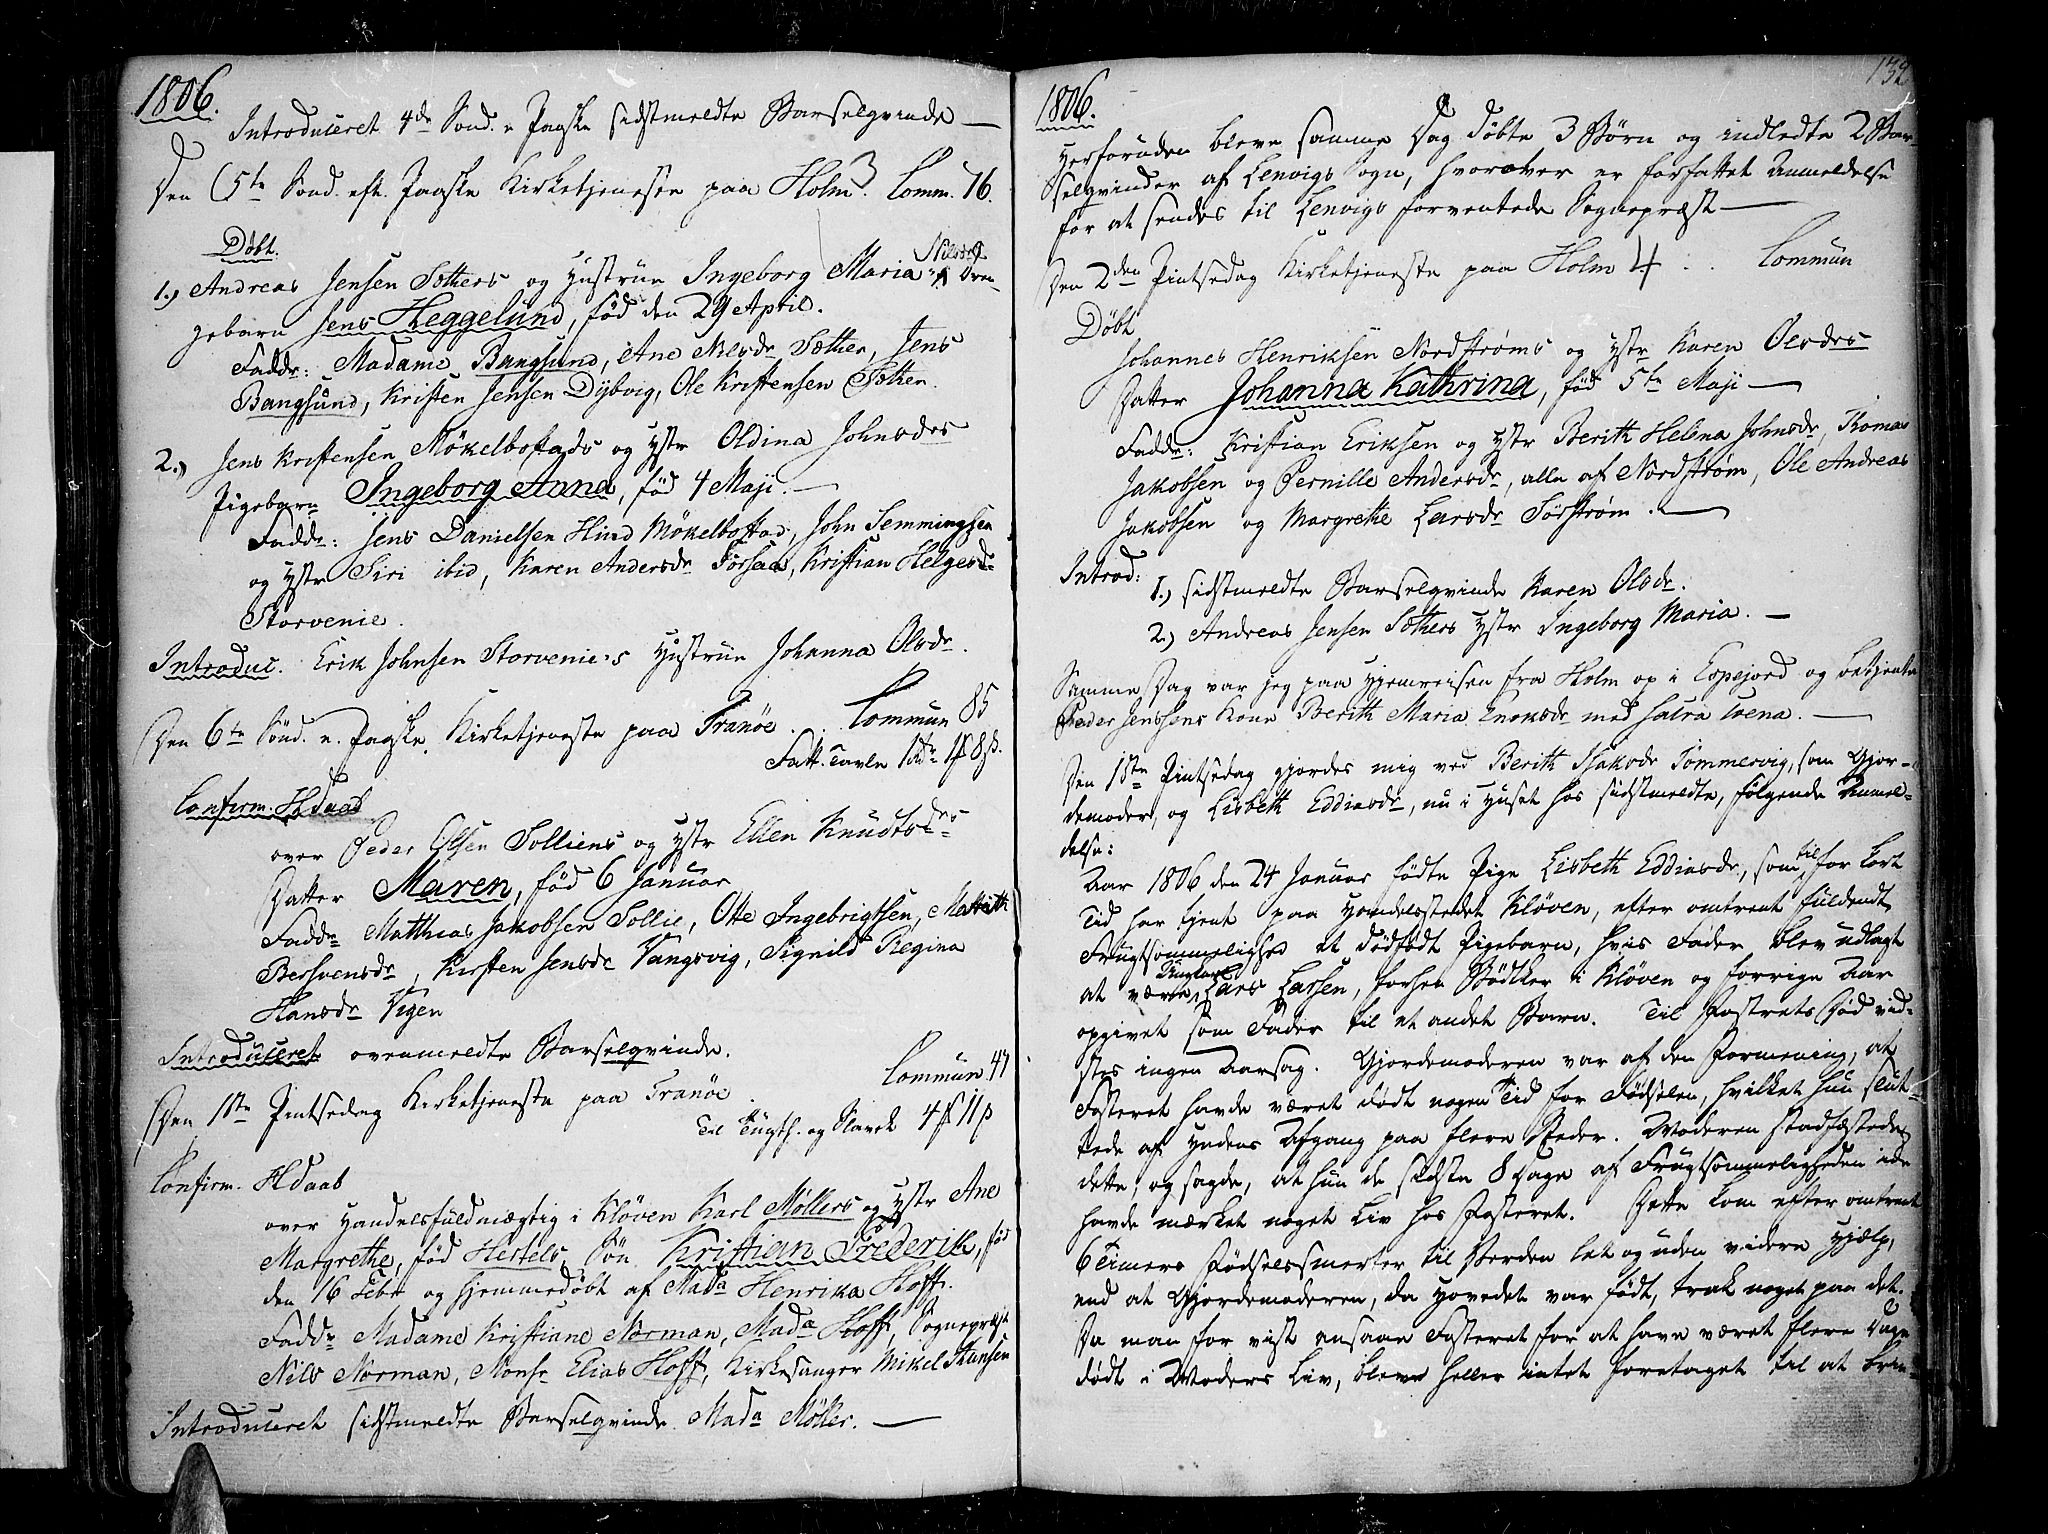 1806.
Introduceret 4de Sønd. e Paaske sidstmeldte Barselqvinde —
Den 5te Sønd. eft. Paaske Kirketjenesten paa Holm 3. Comm. 76.
Døbt.
Nilsd.
1.) Andreas Jensen Søthers og Hustrue Ingeborg Maria Dren-
gebarn Jens Heggelund, fød den 29 April.
Faddr: Madame Bangsund, Ane Nilsdr Søther, Jens
Bangsund, Kristen Jensen Dybvig, Ole Kristensen Søther.
2.) Jens Kristensen Møkelbostads og Hstr Oldina Johnsdrs
Pigebarn Ingeborg Anna, fød 4 Maji. —
Faddr: Jens Danielsen Hind Møkelbostad, John Semmingsen
og Hstr Siri ibid, Karen Andersdr Forsaa, Kristian Helgesd
Storvenie.
Introduc. Erik Johnsen Storvenie's Hustrue Johanna Olsdr.
Den 6te Sønd. e. Paaske Kirketjeneste paa Tranöe . . Commun 85
Fatt. Tavle 1 8 ß.
Confirm. HDaab
over Peder Olsen Solliens og Hstr Ellen Knudtsdrs
Datter Maren, fød 6 Januar
Faddr Matthias Jakobsen Sollie, Otte Ingebrigtsen, Marith
Bersvensdr, Kirsten Jensdr Vangsvig, Signild Regina
Hansdr Vigen
Introduceret ovenmeldte Barselqvinde.
Den 1ste Pintsedag Kirketjeneste paa Tranöe . Commun 47
Til Tugth. og Slaverk 4 11 ß
Confirm. HDaab
over Handelsfuldmægtig i Kløven Karl Møllers og Hstr Ane
Margrethe, fød Hertels, Søn Kristian Frederik, fød
den 16 Febr og hjemmedøbt af Mada Henrika Hoff.
Faddr Madame Kristiane Norman, Mada Hoff, Sognepræst
Nils Norman, Monsr Elias Hoff, Kirkesanger Mikel Hansen
Introduceret sidstmeldte Barselqvinde Mada Møller. —
132
1806.
Herforuden bleve samme Dag døbte 3 Børn og indledte 2 Bar-
selqvinder af Lenvigs Sogn, hvorover er forfattet Anmeldelse
for at sendes til Lenvigs forventede Sognepræst —
Den 2den Pintsedag Kirketjeneste paa Holm 4 . . Commun
Døbt
Johannes Henriksen Nordstrøms og Hstr Karen Olsdrs
Datter Johanna Kathrina, fød 5te Maji —
Faddr: Kristian Eriksen og Hstr Berith Helena Johnsdr, Thomas
Jakobsen og Pernille Andersdr, alle af Nordstrøm, Ole Andreas
Jakobsen og Margrethe Larsdr Sørstrøm. —
Introd:
1.) sidstmeldte Barselqvinde Karen Olsdr.
2.) Andreas Jensen Søthers Hstr Ingeborg Maria. —
Samme Dag var jeg paa Hjemreisen fra Holm op i Espejord og betjente
Peder Jenssens Kone Berith Maria Enoksdr med sacra coena. —
Den 1ste Pintsedag gjordes mig ved Berith Isaksdr Tømmervig, som Gjor-
demoder, og Lisbeth Eddiasdr, nu i Huset hos sidstmeldte, følgende Anmel-
delse:
Aar 1806 den 24 Januar fødte Pige Lisbeth Eddiasdr, som til for kort
Tid har tjent paa Handelsstedet Kløven, efter omtrent fuldendt
Frugtsommelighed et dødfødt Pigebarn, hvis Fader blev udlagt
Ungkarl
at være Lars Larsen, forhen Bødtker i Kløven og forrige Aar
opgivet som Fader til et andet Barn. Til Fostrets Død vid-
stes ingen Aarsag. Gjordemoderen var af den Formening, at
Fosteret havde været dødt nogen Tid for Fødselen, hvilket hun slut-
tede af Hudens Afgang paa flere Steder. Moderen stadfæstede
dette, og sagde, at hun de sidste 8 Dage af Frugtsommeligheden ikke
havde mærket noget Liv hos Fosteret. Dette kom efter omtrent
6 Timers Fødselssmerter til Verden let og uden videre Hjælp,
end at Gjordemoderen, da Hovedet var født, trak noget paa det.
Da man for vist ansaae Fosteret for at have været flere Dage
dødt i Moders Liv, bleve heller intet foretaget til at brin-